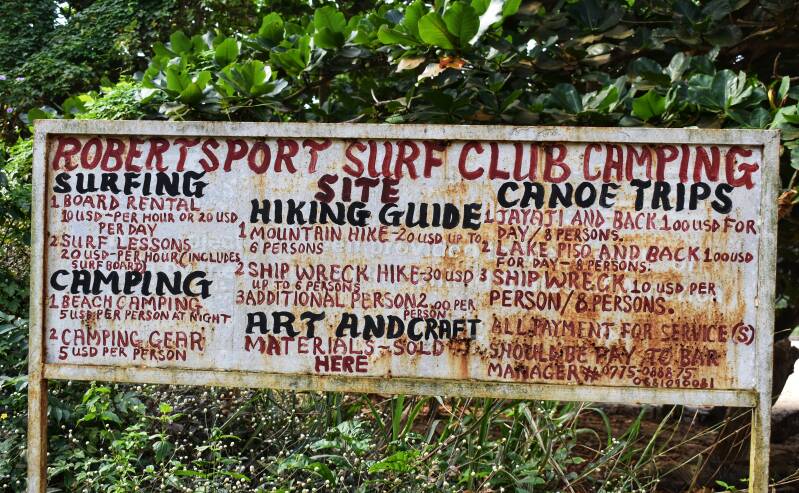 ROBERTSPORT SURF CLUB CAMPING
SITE
SURFING
1 BOARD RENTAL
10 USD-PER HOUR OR 20 USD
PER DAY
2 SURF LESSONS
20 USD-PER HOUR (INCLUDES
SURF BOARD)
CAMPING
1 BEACH CAMPING
5 USD PER PERSON AT NIGHT
2 CAMPING GEAR
5 USD PER PERSON
HIKING GUIDE
1 MOUNTAIN HIKE-20 USD UP TO
6 PERSONS
2 SHIP WRECK HIKE-30 USD
UP TO 6 PERSONS
3 ADDITIONAL PERSON 2.00 PER
PERSON
ART ANDCRAFT
MATERIALS-SOLD
HERE
CANOE TRIPS
1 JAYAJI AND BACK 100 USD FOR
DAY/8 PERSONS.
2 LAKE PISO AND BACK 100USD
FOR DAY-8 PERSONS.
3 SHIP WRECK 10 USD PER
PERSON/8 PERSONS.
ALL PAYMENT FOR SERVICE(S)
SHOULD BE PAY TO BAR
MANAGER # 0775-0888-75